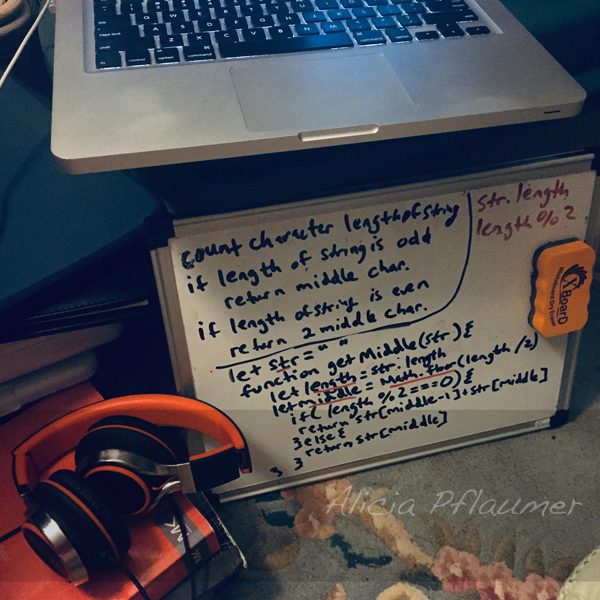 Count character lengthofstring
if length of string is odd
return middle char.
if length of string is even
return 2 middle char.
str.length
length % 2
let str = " "
function getMiddle(str){
let length = str.length
let middle = Math.floor(length/2)
if(length %2===0){
return str[middle-1]+str[middle]
}else{
return str[middle]
}
}
XBoarD
Alicia Pflaumer